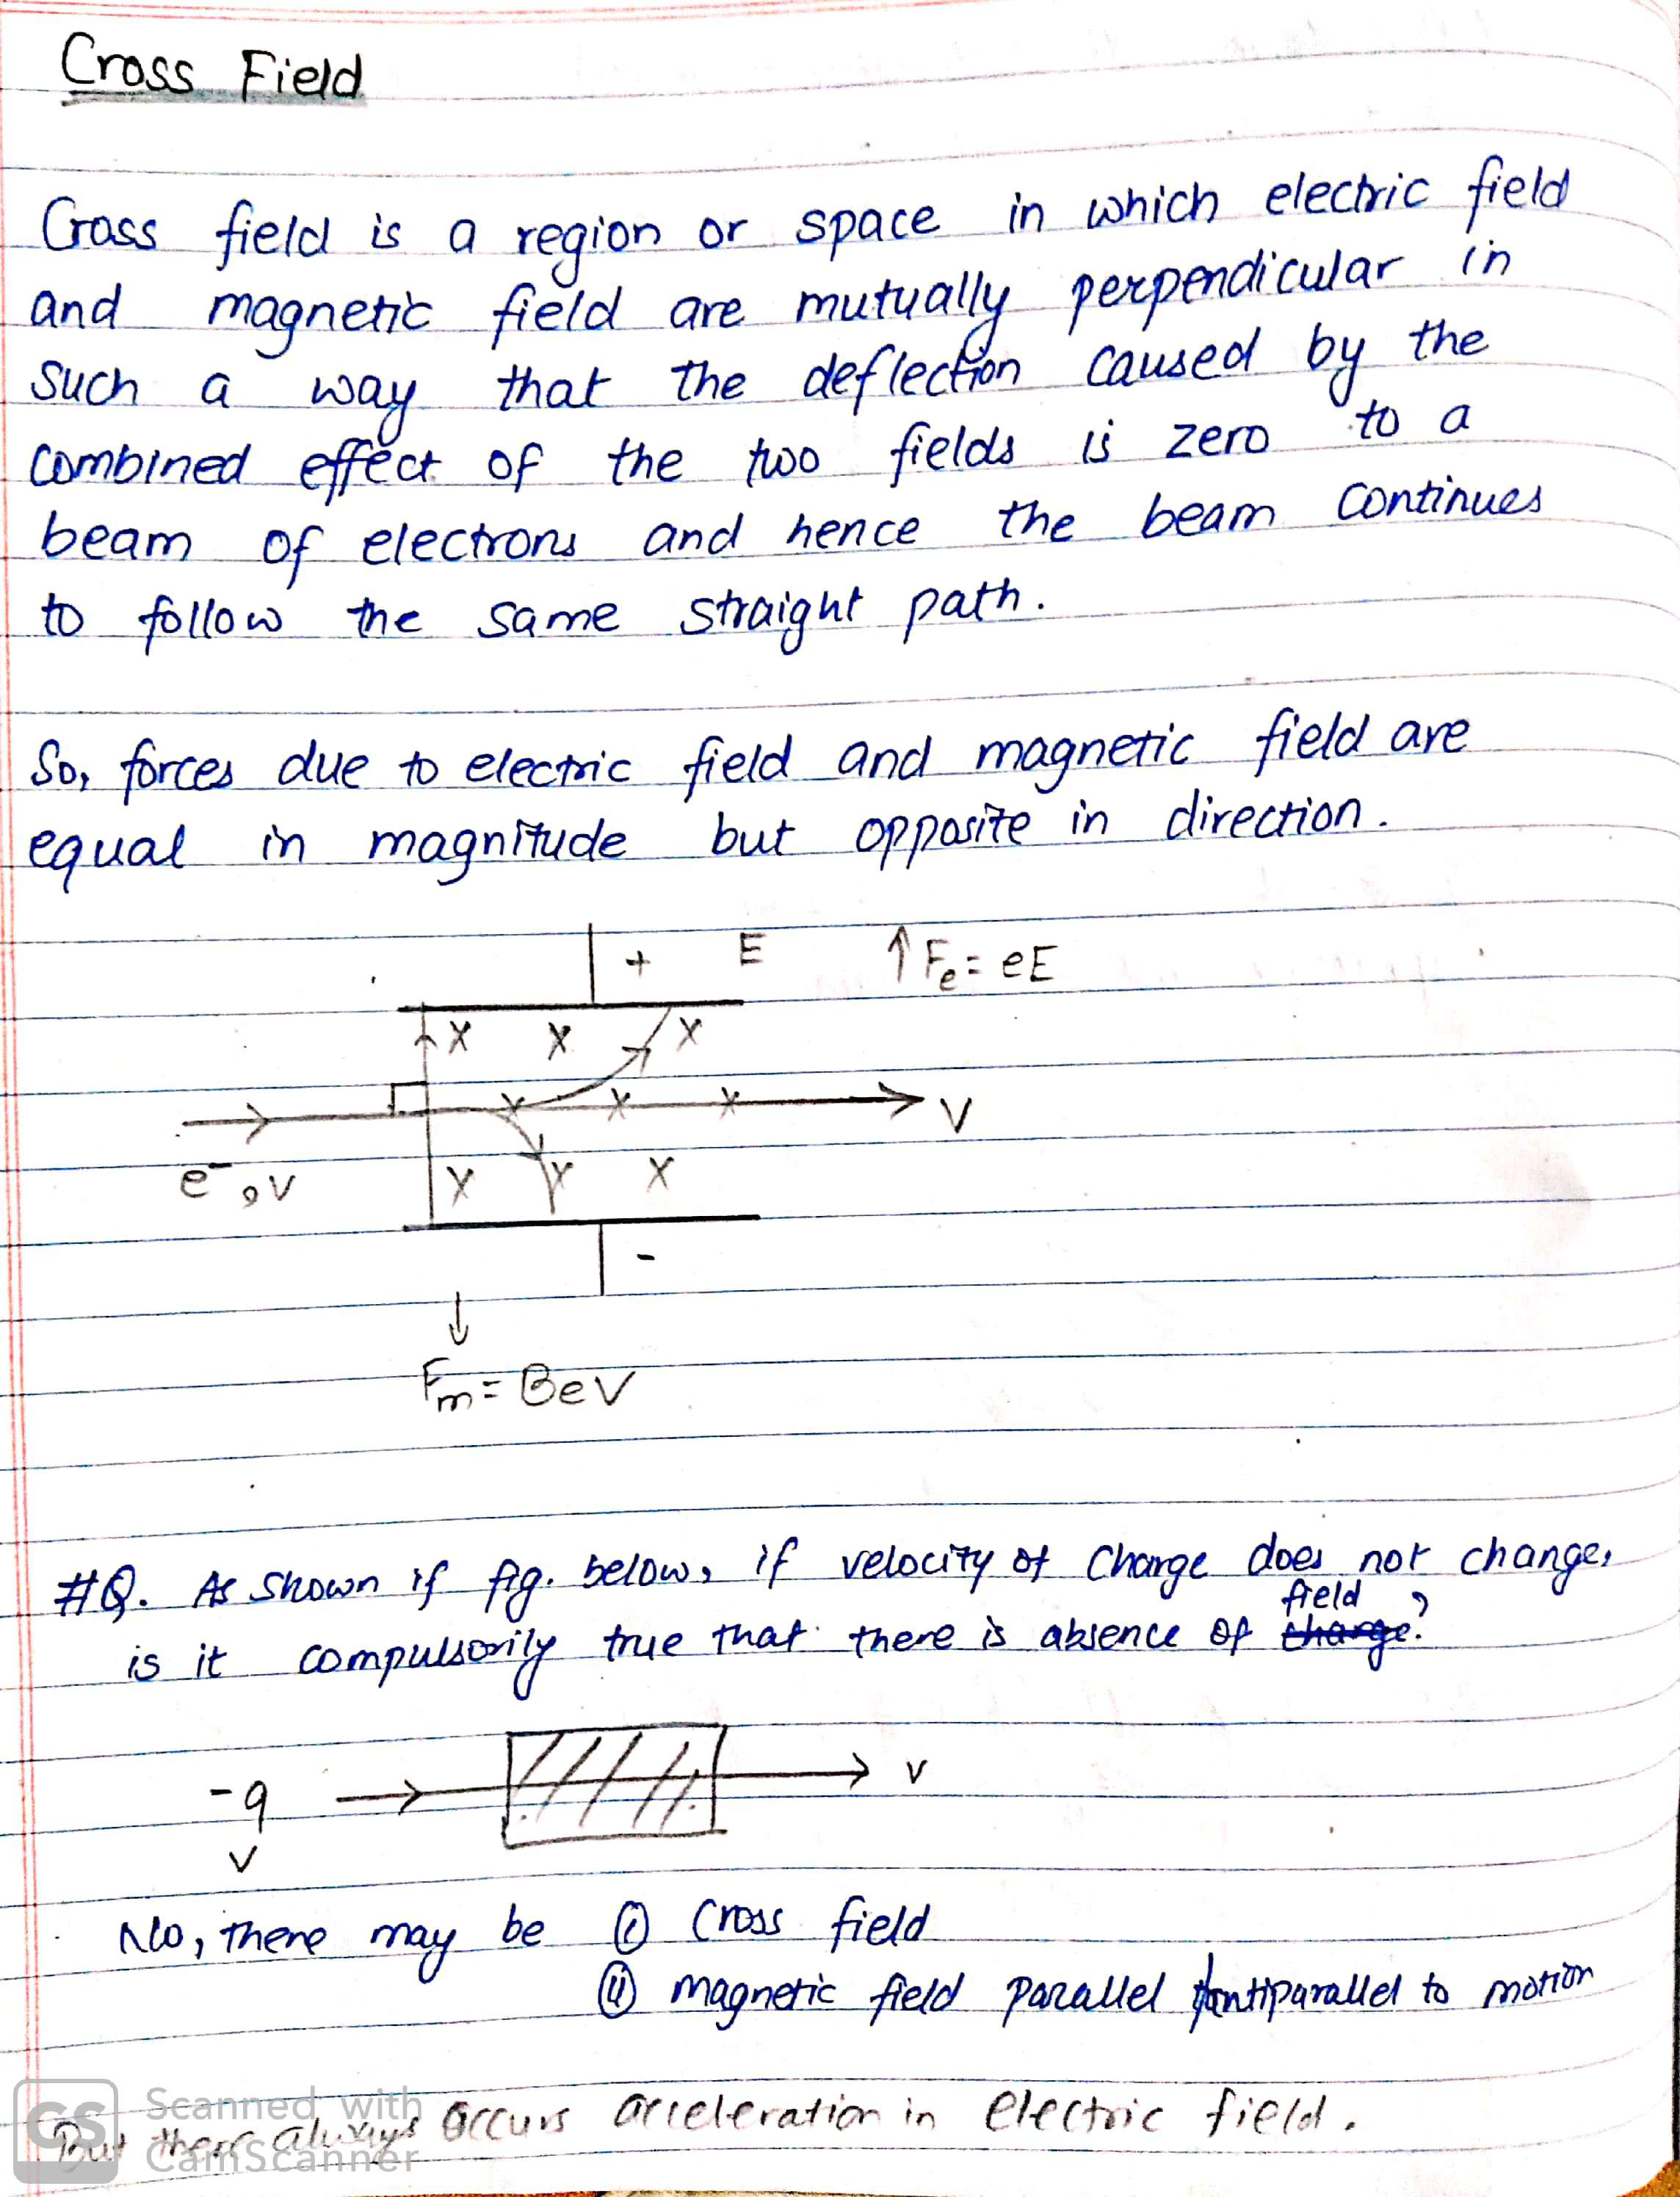 Cross Field
Cross field is a region or space in which electric field
and magnetic field are mutually perpendicular in
such a way that the deflection caused by the
combined effect of the two fields is zero to a
beam of electrons and hence the beam continues
to follow the same straight path.
So, forces due to electric field and magnetic field are
equal in magnitude but opposite in direction.
+ E ↑ Fe = eE
X X X
X X X V
e⁻, v
X X X
-
↓
Fm = BeV
#Q. As shown if fig. below, if velocity of charge does not change,
field
is it compulsorily true that there is absence of charge?
-q v
v
No, there may be (i) Cross field
(ii) magnetic field parallel / antiparallel to motion
But there always occurs acceleration in electric field.
CS Scanned with
CamScanner